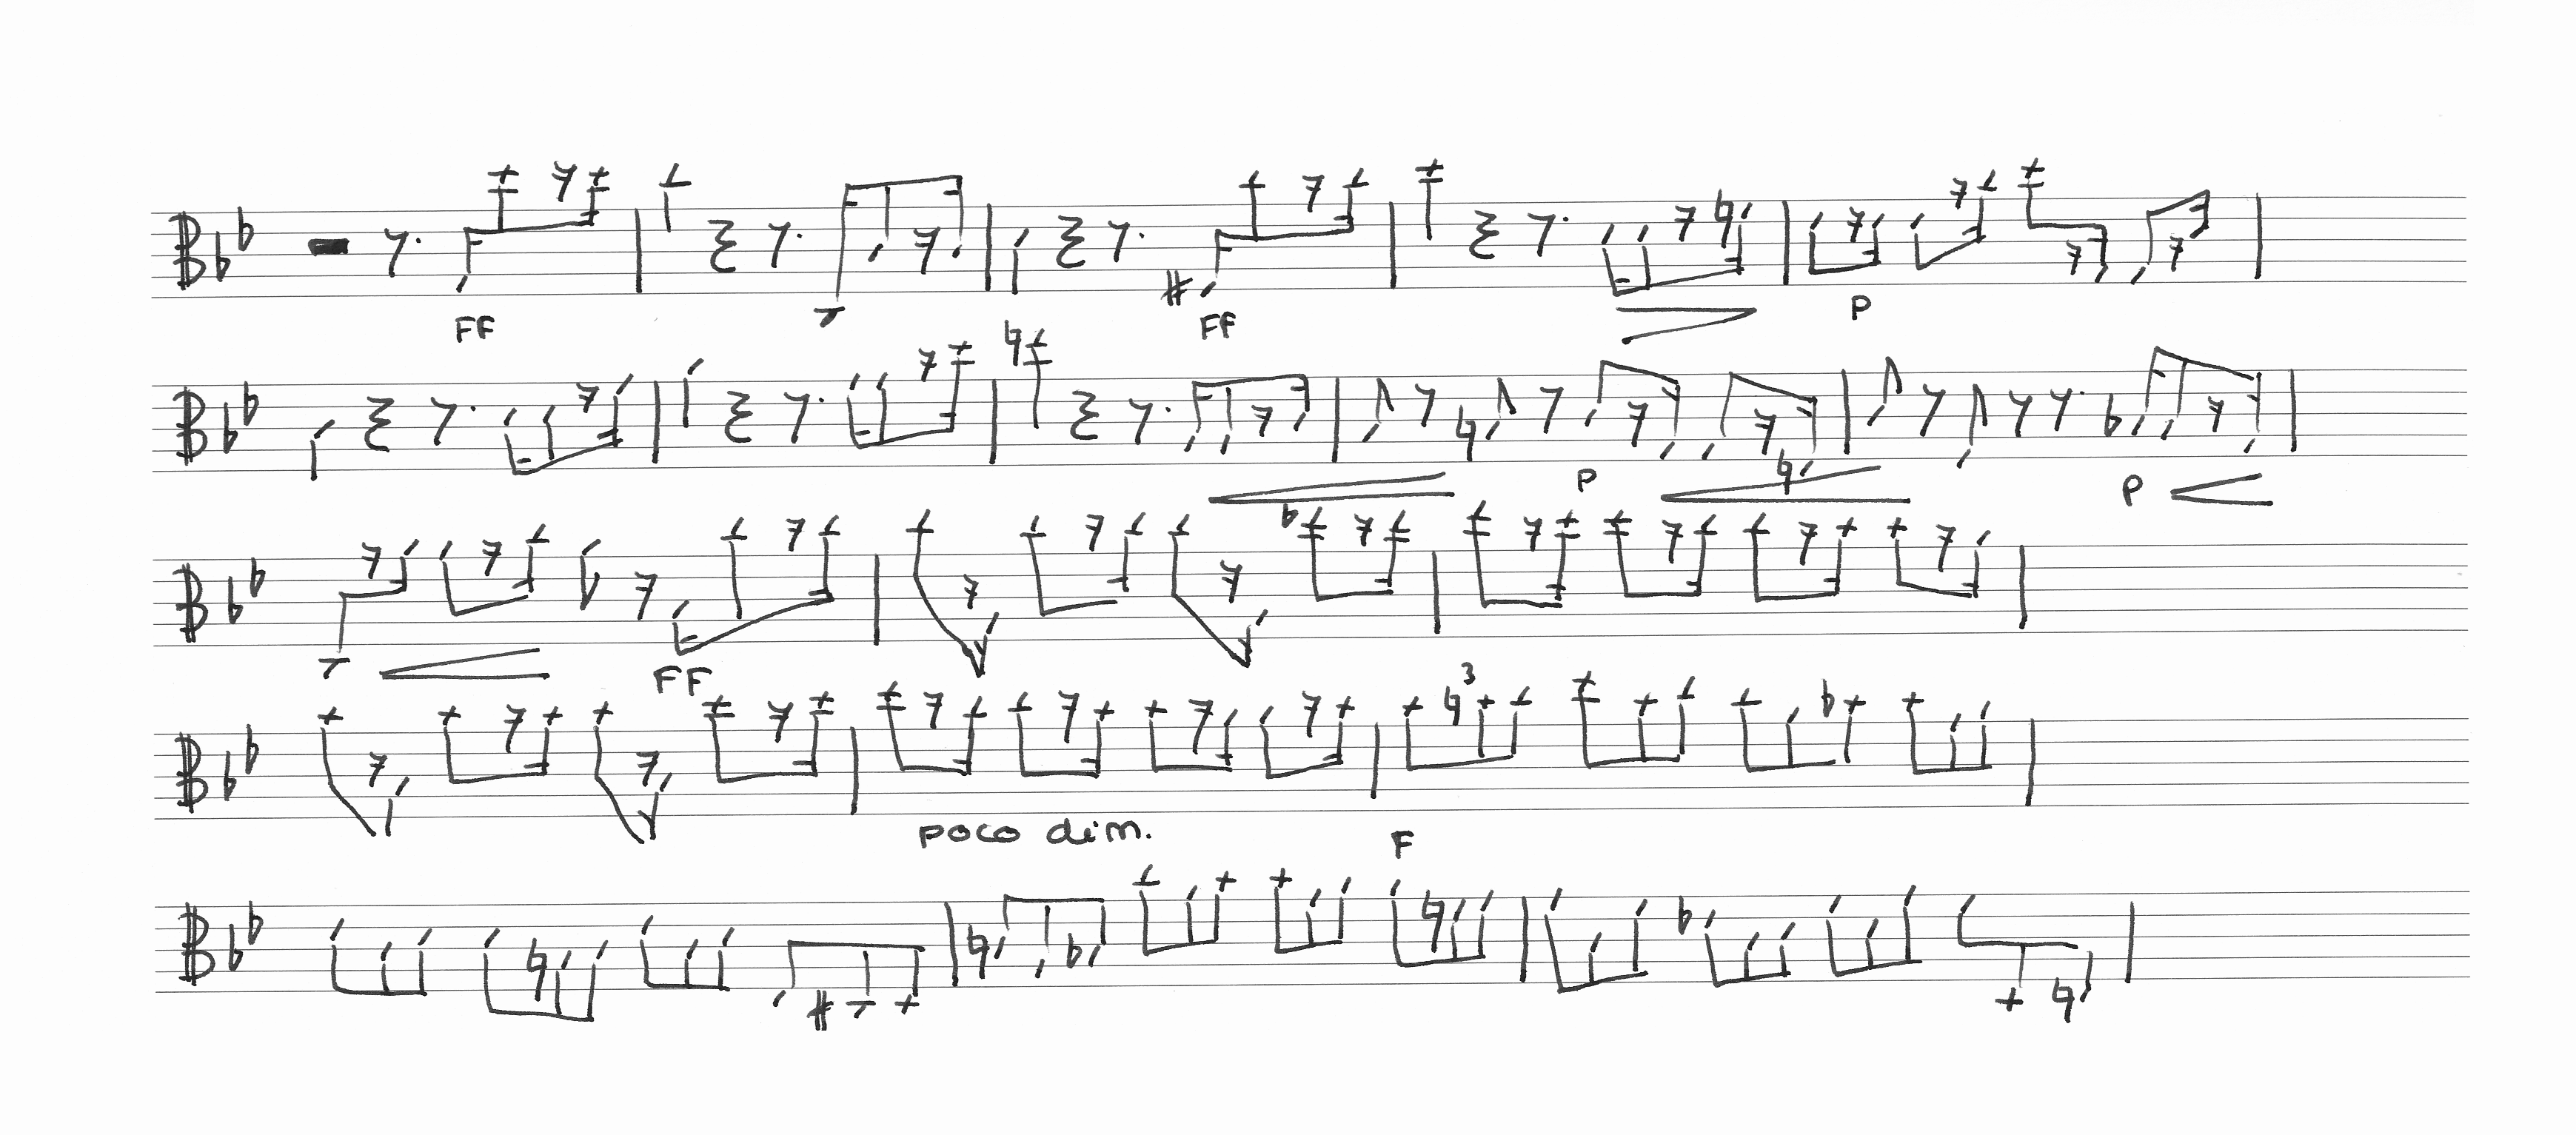 FF FF P
P P
FF
3
poco dim. F